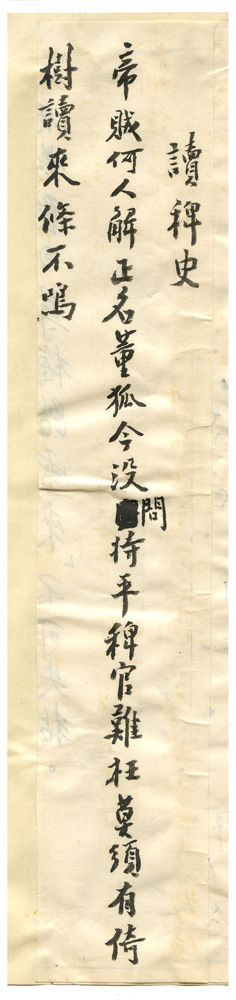 讀稗史
帝賊何人解正名董狐今没問持平稗官難枉莫須有倚
樹讀來條不鳴